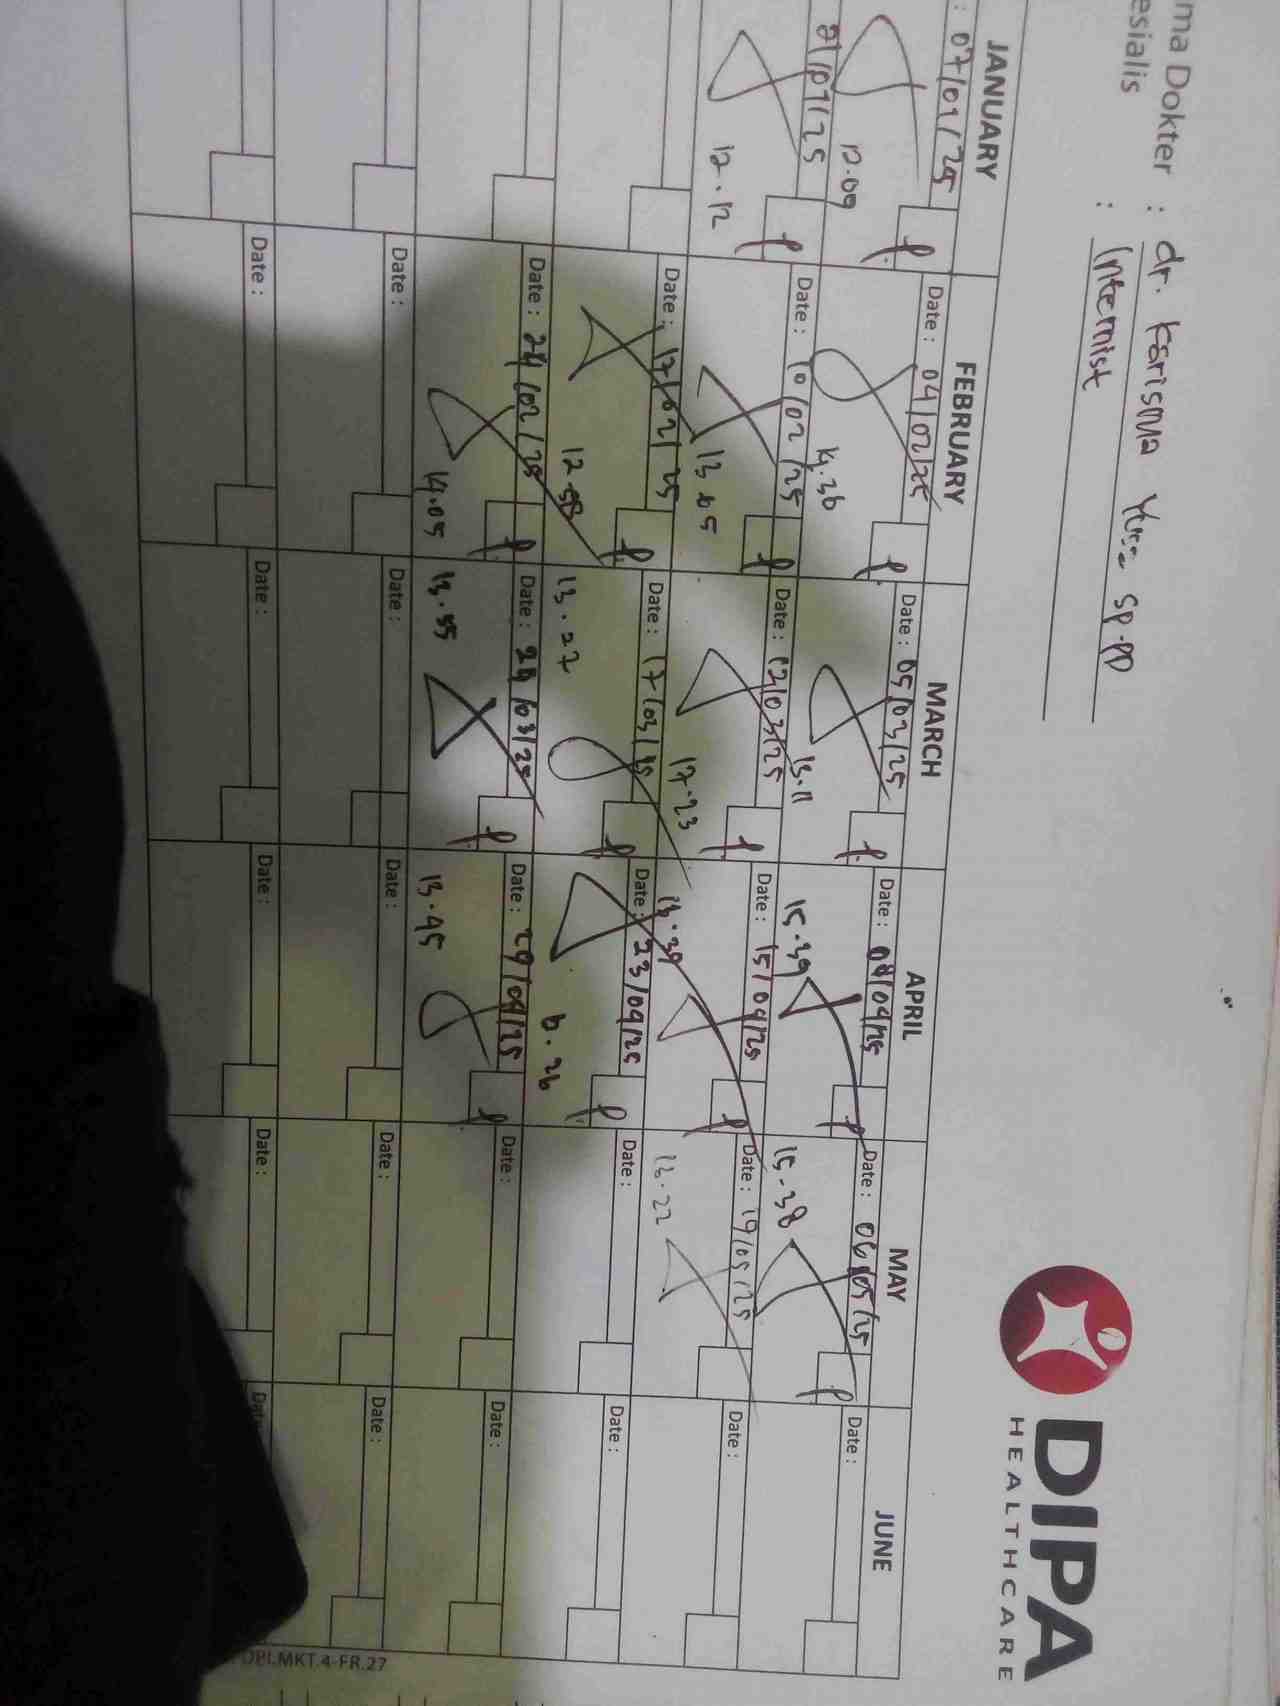 DIPA
HEALTHCARE
ma Dokter : dr. Karisma
Sp.PD
esialis : Internist
JANUARY FEBRUARY MARCH APRIL MAY JUNE
: 07/01/25 Date : 04/02/25 Date : 05/03/25 Date : 08/04/25 Date : 06/05/25 Date :
12.09 14.36 13.11 15.39 15.38
21/01/25 Date : 10/02/25 Date : 12/03/25 Date : 15/04/25 Date : 19/05/25 Date :
12.12 13.05 17.23 13.39 13.22
Date : 17/02/25 Date : 17/03/25 Date : 23/04/25 Date : Date :
12.58 13.27
Date : 24/02/25 Date : 24/03/25 Date : 29/04/25 Date : Date :
14.05 13.55 13.45
Date : Date : Date : Date : Date :
Date : Date : Date : Date : Date
MKT.4-FR.27